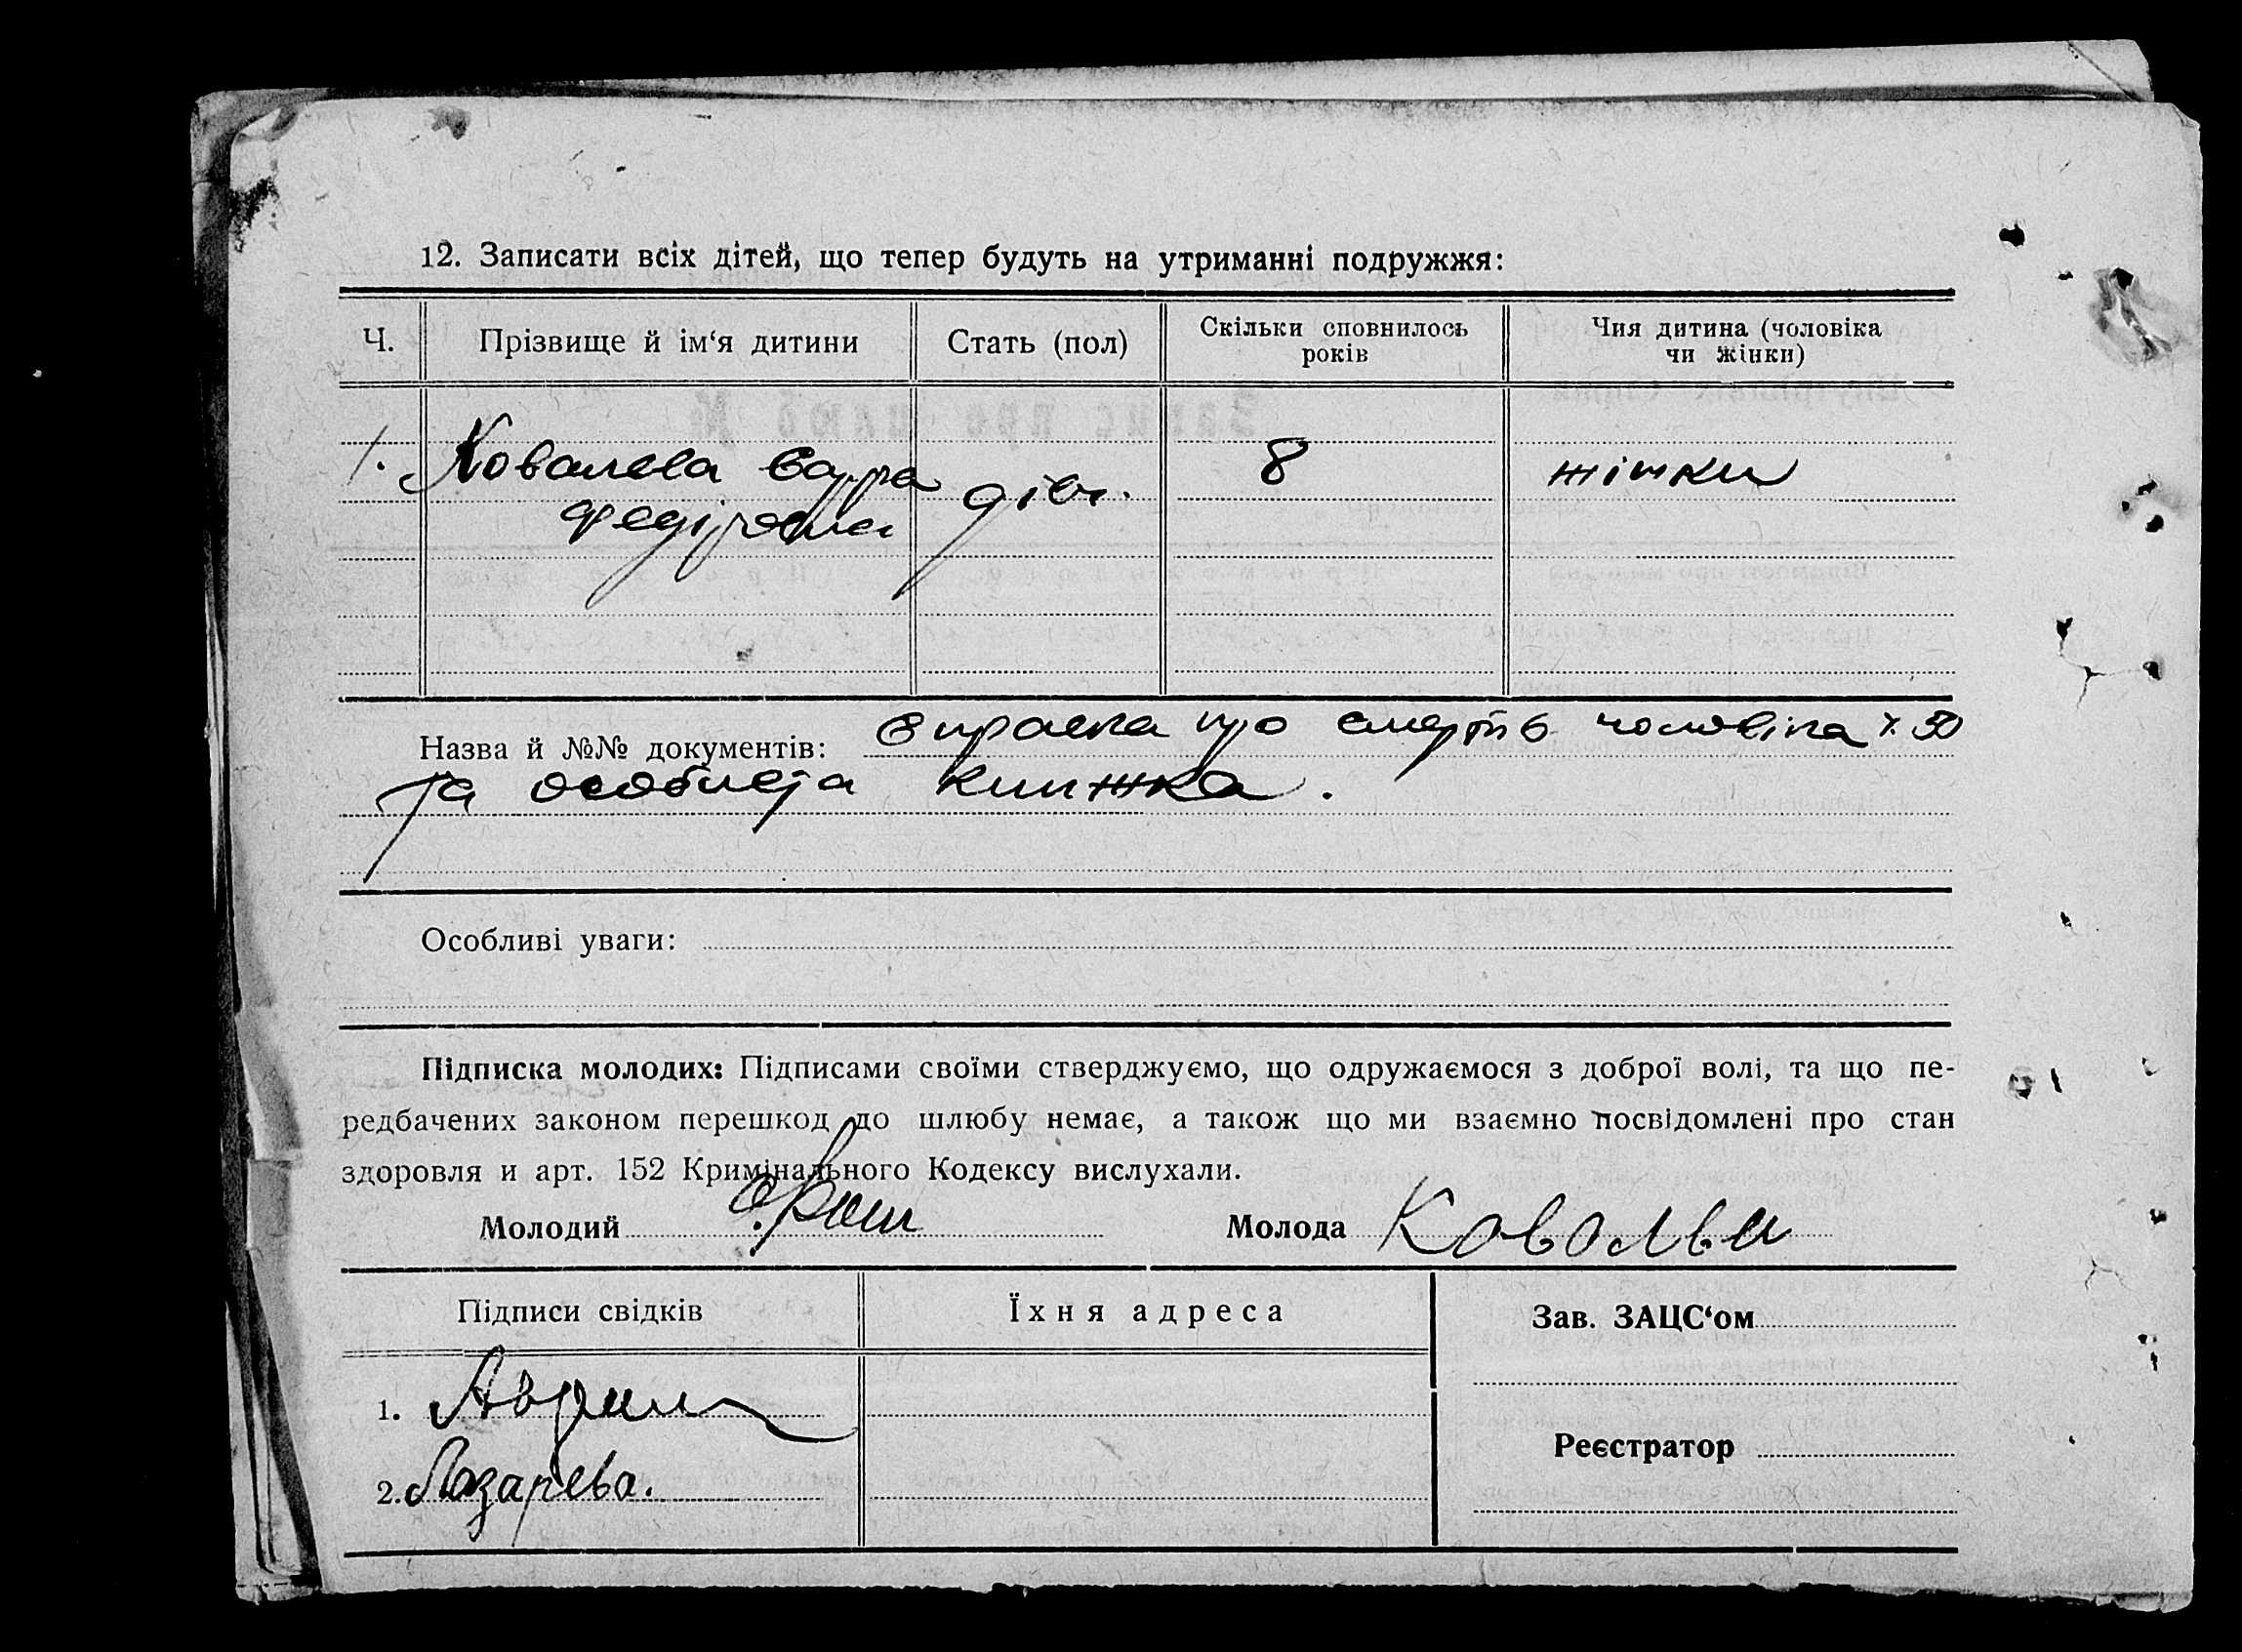 12. Записати всіх дітей, що тепер будуть на утриманні подружжя:
Ч. Прізвище й ім‘я дитини Стать (пол) Скільки сповнилось років Чия дитина (чоловіка чи жінки)
1. Ковалева дівч. 8 жінки
Назва й №№ документів: справка про смерть чоловіка
та особиста книжка.
Особливі уваги:
Підписка молодих: Підписами своїми стверджуємо, що одружаємося з доброї волі, та що пе-
редбачених законом перешкод до шлюбу немає, а також що ми взаємно посвідомлені про стан
здоровля и арт. 152 Кримінального Кодексу вислухали.
Молодий Молода
Підписи свідків Їхня адреса Зав. ЗАЦС‘ом
1.
Реєстратор
2. Лазарева.